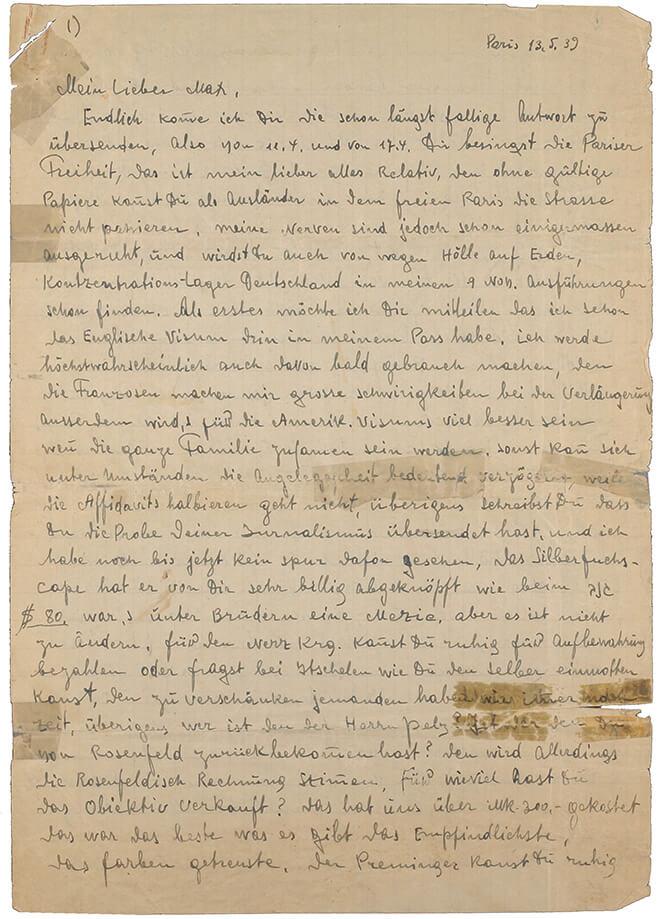 1)
Paris 13.5.39
Mein lieber Max,
Endlich kome ich Dir die schon längst fallige Antwort zu
übersenden, Also von 11.4. und von 17.4. Du besingst die Pariser
Freiheit, das ist mein lieber alles Relativ, den ohne gültige
Papiere kanst Du als Ausländer in dem freien Paris die Strasse
nicht passieren, meine Nerven sind jedoch schon einigermassen
ausgeruht, und wirdst Du auch von wegen Hölle auf Erden,
Kontzentrations-Lager Deutschland in meinen 9 Nov. Ausführungen
schon finden. Als erstes möchte ich Dir mitteilen das ich schon
das Englische Visum drin in meinem Pass habe, ich werde
höchstwahrscheinlich auch davon bald gebrauch machen, den
die Franzosen machen mir grosse schwirigkeiten bei der Verlängerung
ausserdem wird,s für die Amerik. Visums viel besser sein
wen die ganze Familie zusamen sein werden, sonst kan sich
unter Umständen die Angelegenheit bedeutend verzögern, weil
die Affidavits halbieren geht nicht, überigens schreibst Du dass
Du die Probe Deiner Jurnalismus übersendet hast, und ich
habe noch bis jetzt kein spur dafon gesehen, Das Silberfuchs-
cape hat er von Dir sehr billig abgeknöpft wie beim
$ 80. war,s unter Brüdern eine Mezie, aber es ist nicht
zu ändern, für den Nerz Krg. kanst Du ruhig für Aufbewahrung
bezahlen oder fragst bei Itschelen wie Du den selber einmotten
kanst, den zu verschänken jemanden haben wir imer noch
zeit, überigens wer ist den der Herrn Pelz? den Du
von Rosenfeld zurückbekomen hast? den wird Allerdings
die Rosenfeldisch Rechnung Stimen, für wieviel hast Du
das Obiektiv verkauft? das hat uns über Mk. 300,- gekostet
das war das beste was es gibt das Empfindlichste,
das farben getreuste. Der Preminger kanst Du ruhig